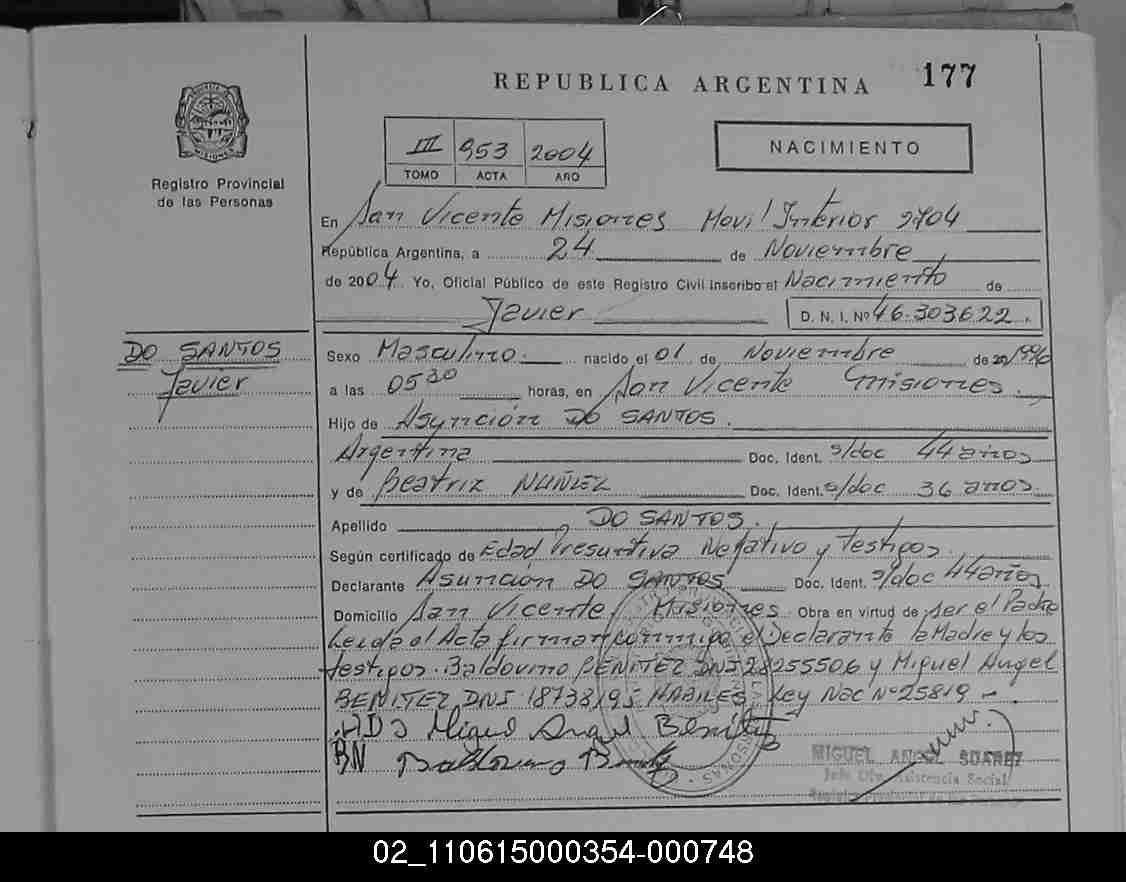 REPUBLICA ARGENTINA 177
III 953 2004
TOMO ACTA AÑO
NACIMIENTO
Registro Provincial
de las Personas
En San Vicente Misiones Movil Interior 2704
República Argentina, a 24 de Noviembre
de 2004 Yo, Oficial Público de este Registro Civil inscribo el Nacimiento de
Javier D. N. I. Nº 46.303.622.
DO SANTOS
Javier
Sexo Masculino. nacido el 01 de Noviembre de 1996
a las 05 30 horas, en San Vicente Misiones.
Hijo de Asunción DO SANTOS.
Argentina Doc. Ident. s/doc 44 años
y de Beatriz NUÑEZ Doc. Ident. s/doc 36 anos.
Apellido DO SANTOS.
Según certificado de Edad Presuntiva Negativo y testigos.
Declarante Asuncion DO SANTOS Doc. Ident. s/doc 44 años
Domicilio San Vicente, Misiones. Obra en virtud de ser el Padre
Leida el Acta firman conmigo el Declarante la Madre y los
testigos. Baldovino BENITEZ DNI 28255506 y Miguel Angel
BENITEZ DNI 18738195 HABILES Ley Nac Nº 25819 -
ADS Miguel Angel Benitez
BN
MIGUEL ANGEL SUAREZ
Jefe Div. Asistencia Social
02_110615000354-000748